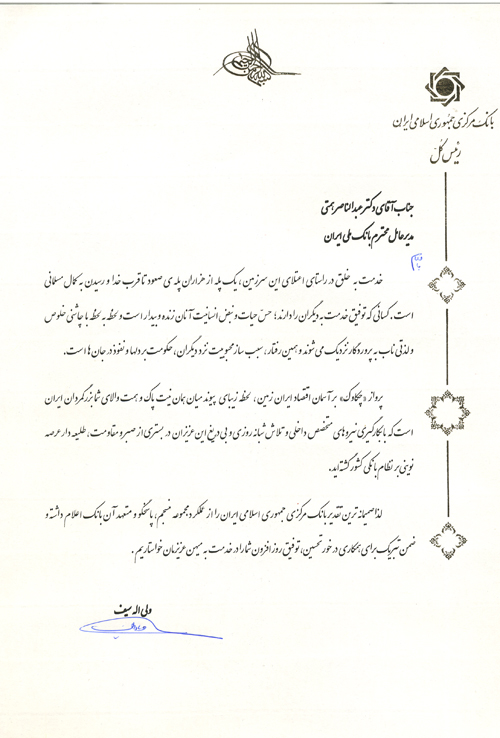 بانک مرکزی جمهوری اسلامی ایران
رئیس کل
جناب آقای دکتر عبدالناصر همتی
مدیرعامل محترم بانک ملی ایران
خدمت به خلق در راستای اعتلای این سرزمین، یک پله از هزاران پله ی صعود تا قرب خدا و رسیدن به کمال مسلمانی
است. کسانی که توفیق خدمت به دیگران را دارند؛ حس حیات و نبض انسانیت آنان زنده و بیدار است و لحظه به لحظه با چاشنی خلوص
و لذتی ناب به پروردگار نزدیک می شوند و همین رفتار، سبب ساز محبوبیت نزد دیگران، حکومت بر دلها و نفوذ در جان ها است.
پرواز «چکاوک» بر آسمان اقتصاد ایران زمین، لحظه زیبای پیوند میان همان نیت پاک و همت والای شما بزرگمردان ایران
است که با بکارگیری نیروهای متخصص داخلی و تلاش شبانه روزی و بی دریغ این عزیزان در بستری از صبر و مقاومت، طلیعه دار عرصه
نوینی بر نظام بانکی کشور گشته اید.
لذا صمیمانه ترین تقدیر بانک مرکزی جمهوری اسلامی ایران را از عملکرد مجموعه منسجم، پاسخگو و متعهد آن بانک اعلام داشته و
ضمن تبریک برای همکاری در خور تحسین، توفیق روز افزون شما را در خدمت به میهن عزیزمان خواستاریم.
ولی اله سیف